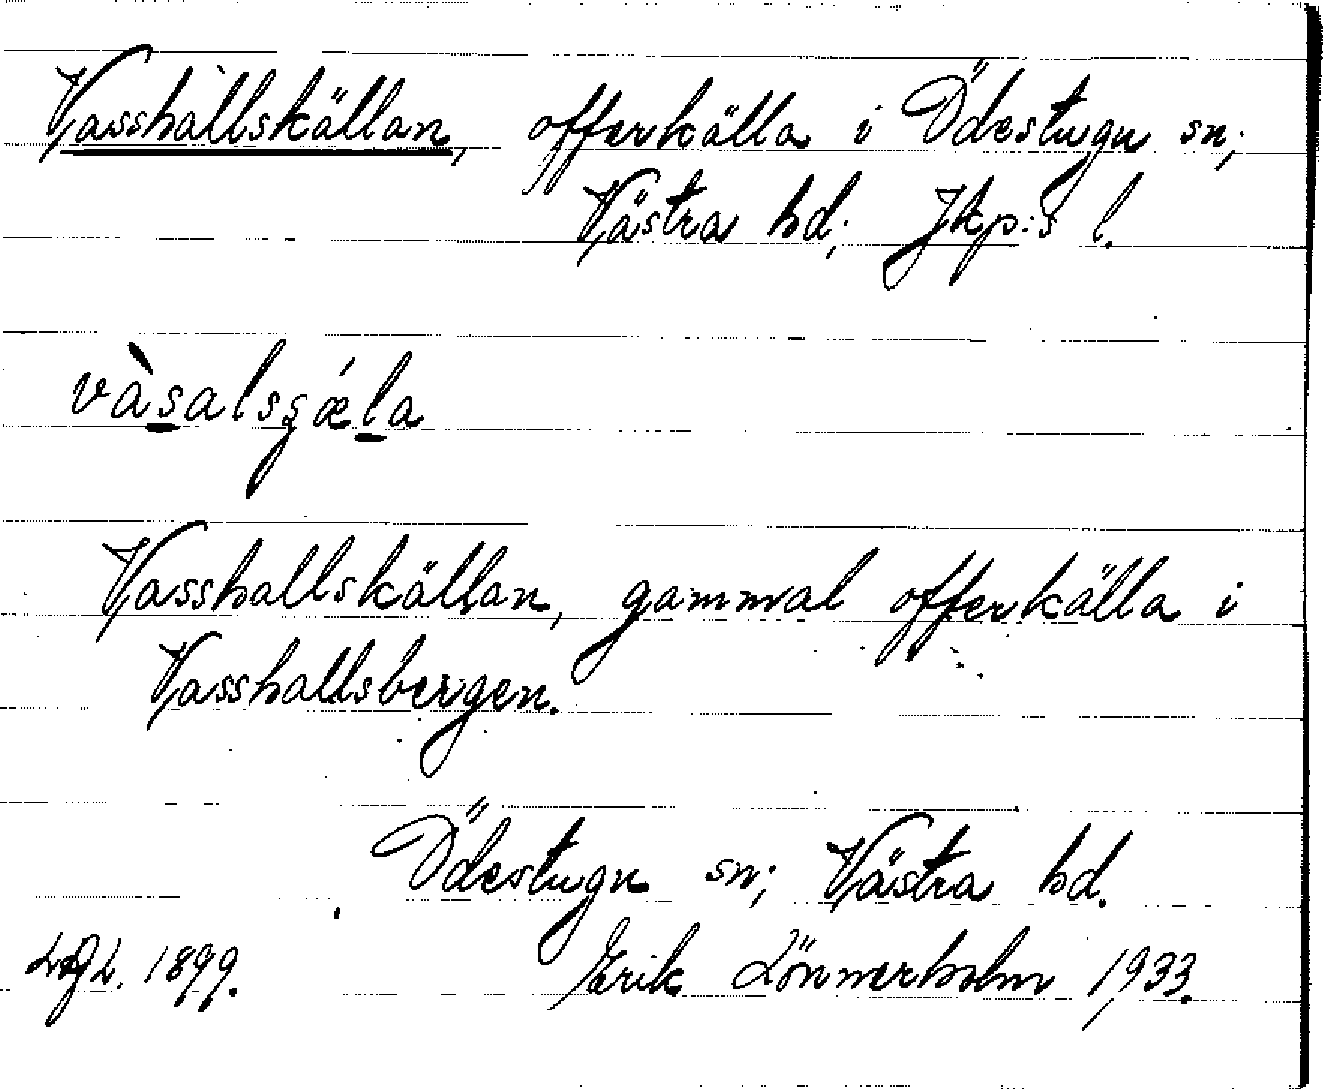 Vasshallskällan, offerkälla i Ödestugu sn;
Västra hd; Jkp:s l.
vàsalsʂǽla
Vasshallskällan, gammal offerkälla i
Vasshallsbergen.
Ödestugu sn; Västra hd.
1899. Erik Lönnerholm 1933.